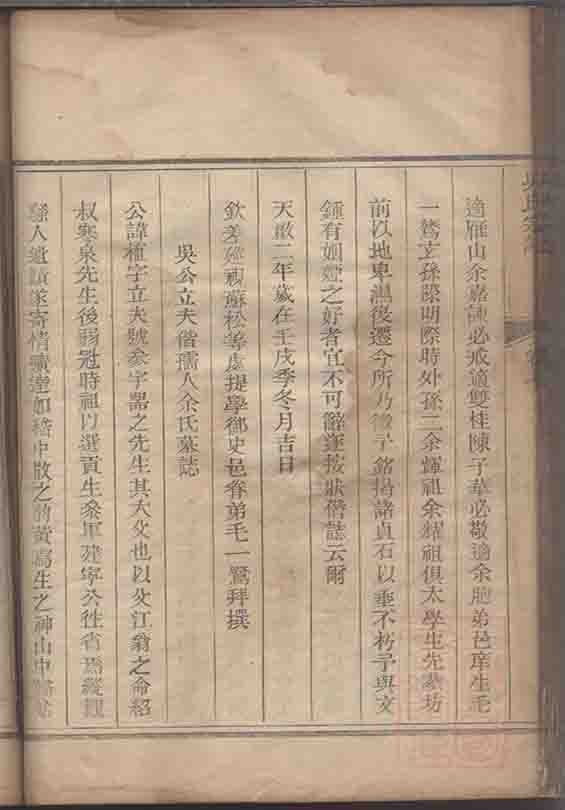 適雁山余嘉諫必戒適雙桂陳子華必敬適余胞弟邑庠生毛
一鷟玄孫際明際時外孫二余輝祖余耀祖俱太學生先厝坊
前以地卑濕後遷今所乃徵予銘揭諸貞石以垂不朽予與文
鍾有姻婭之好者宜不可辭遂按狀僭誌云爾
天啟二年歲在壬戌季冬月吉日
欽差廵視蘇松等處提學御史邑眷弟毛一鷟拜撰
吳公立夫偕孺人余氏墓誌
公諱植字立夫號參字器之先生其大父也以父江翁之命紹
叔寒泉先生後弱冠時祖以選貢生參軍建寧公往省焉縱觀
騷人遺蹟遂寄情曠達如嵇中散之 黃 生之神山中